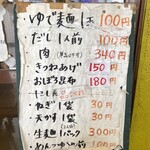 ゆで麺 1玉 100円
だし 1人前 100円
肉 340円
きつねあげ 150円
おぼろ昆布 180円
にしん
ねぎ 1袋 30円
天かす 1袋 30円
生麺 1パック 300円
めんつゆ 1人前 100円